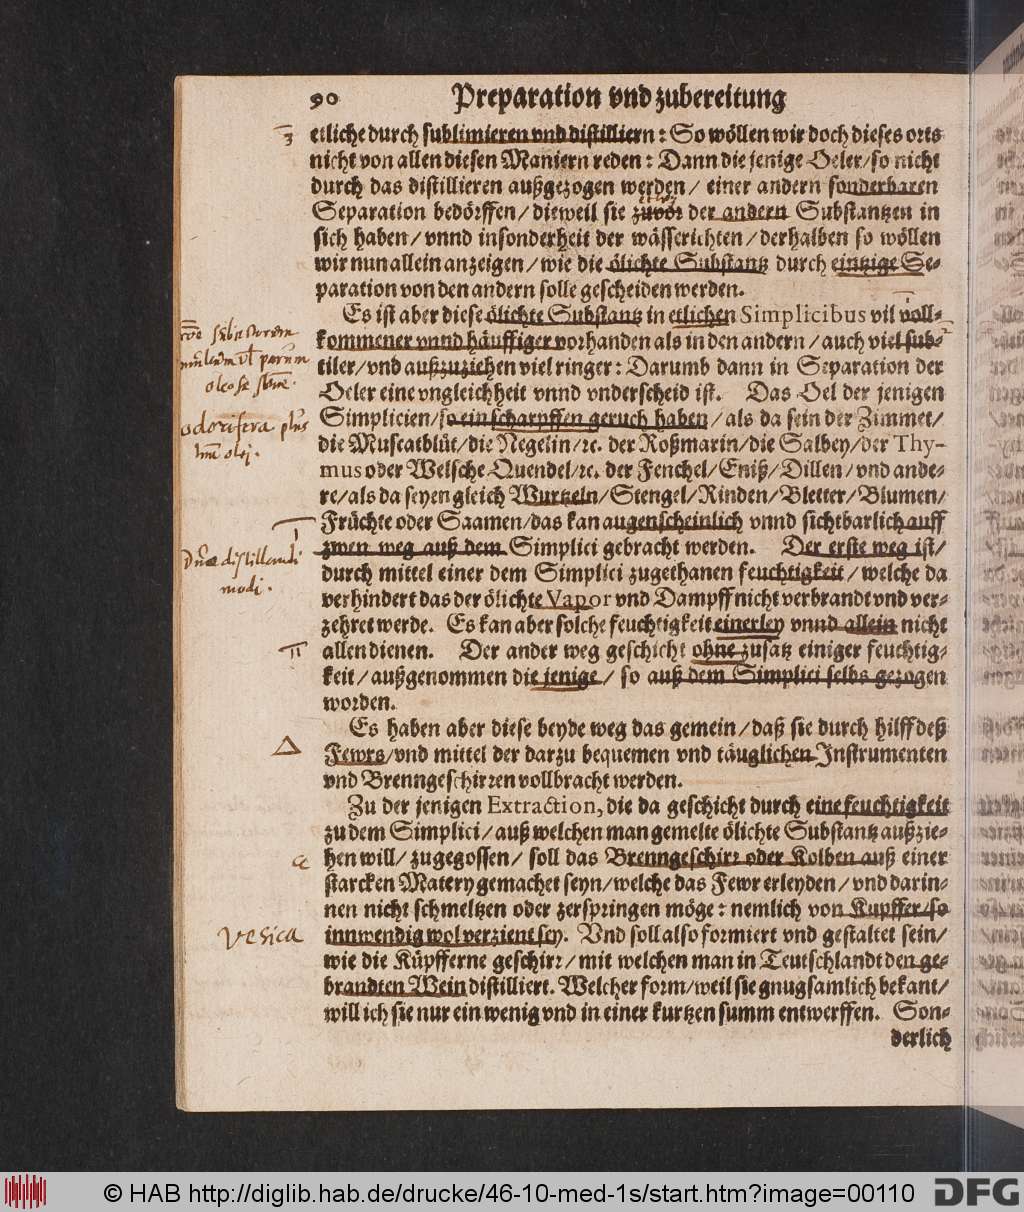 90 Preparation vnd zubereitung
3
etliche durch sublimieren vnd distilliern: So wöllen wir doch dieses orts
nicht von allen diesen Maniern reden: Dann die jenige Oeler/so nicht
durch das distillieren außgezogen werden/ einer andern sonderbaren
Separation bedörffen/dieweil sie zuvor der andern Substantzen in
sich haben/vnnd insonderheit der wässerichten/derhalben so wöllen
wir nun allein anzeigen/wie die ölichte Substantz durch eintzige Se-
paration von den andern solle gescheiden werden.
Es ist aber diese ölichte Substantz in etlichen Simplicibus vil voll-
kommener vnnd häuffiger vorhanden als in den andern/auch viel sub-
tiler/vnd außzuziehen viel ringer: Darumb dann in Separation der
oleose
Oeler eine vngleichheit vnnd vnderscheid ist. Das Oel der jenigen
odorifera plus
Simplicien/so ein scharpffen geruch haben/als da sein der Zimmet/
olej.
die Muscatblüt/die Negelin/ꝛc. der Roßmarin/die Salbey/der Thy-
mus oder Welsche Quendel/ꝛc. der Fenchel/Eniß/Dillen/vnd ande-
re/als da seyen gleich Wurtzeln/Stengel/Rinden/Bletter/Blumen/
I
Früchte oder Saamen/das kan augenscheinlich vnnd sichtbarlich auff
distillandi
zwen weg auß dem Simplici gebracht werden. Der erste weg ist/
modi.
durch mittel einer dem Simplici zugethanen feuchtigkeit/welche da
verhindert das der ölichte Vapor vnd Dampff nicht verbrandt vnd ver-
zehret werde. Es kan aber solche feuchtigkeit einerley vnnd allein nicht
II
allen dienen. Der ander weg geschicht ohne zusatz einiger feuchtig-
keit/außgenommen die jenige/ so auß dem Simplici selbs gezogen
worden.
Es haben aber diese beyde weg das gemein/daß sie durch hilff deß
△
Fewrs/vnd mittel der darzu bequemen vnd täuglichen Instrumenten
vnd Brenngeschirren vollbracht werden.
Zu der jenigen Extraction, die da geschicht durch eine feuchtigkeit
zu dem Simplici/auß welchen man gemelte ölichte Substantz außzie-
hen will/ zugegossen/ soll das Brenngeschirꝛ oder Kolben auß einer
starcken Matery gemachet seyn/welche das Fewr erleyden/vnd darin-
nen nicht schmeltzen oder zerspringen möge: nemlich von Kupffer/so
Vesica
innwendig wol verzient sey. Vnd soll also formiert vnd gestaltet sein/
wie die Küpfferne geschirꝛ/mit welchen man in Teutschlandt den ge-
brandten Wein distilliert. Welcher form/weil sie gnugsamlich bekant/
will ich sie nur ein wenig vnd in einer kurtzen summ entwerffen. Son-
derlich
© HAB http://diglib.hab.de/drucke/46-10-med-1s/start.htm?image=00110
DFG